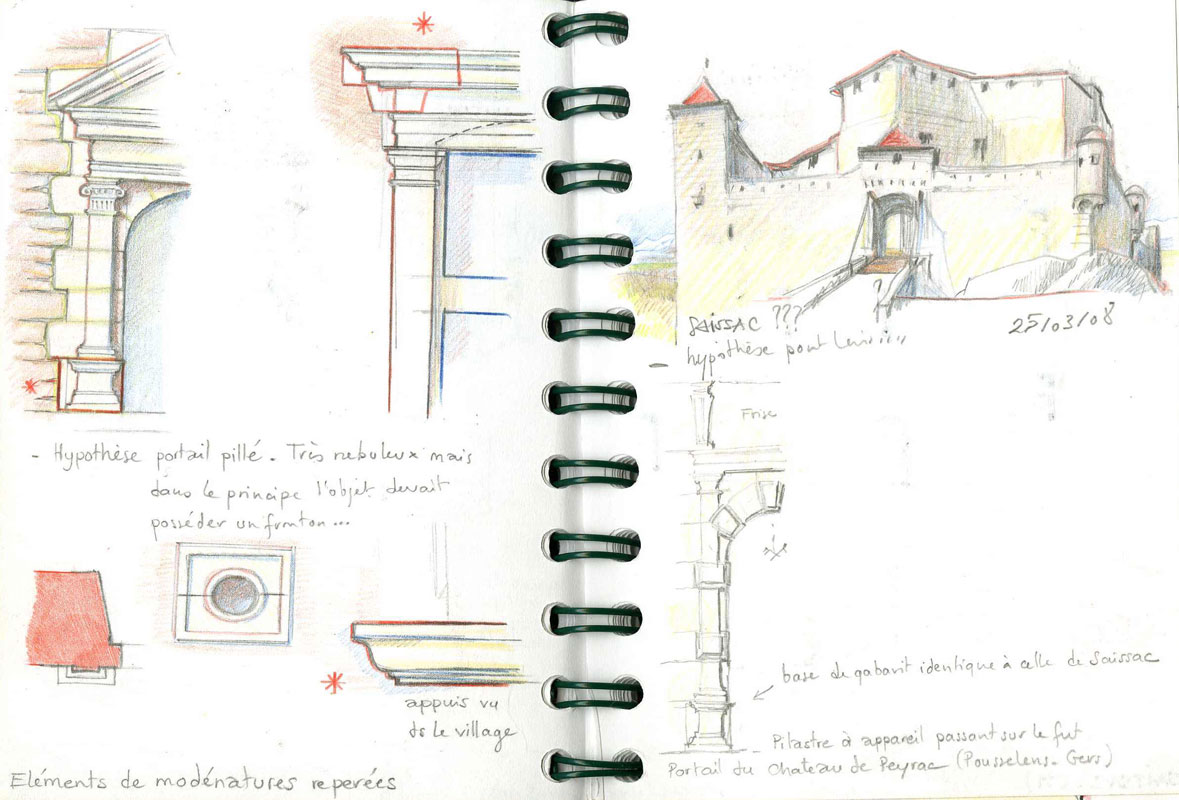 - Hypothèse portail pillé. Très nebuleux mais
dans le principe l'objet devait
posséder un fronton...
appuis vu
ds le village
Eléments de modénatures reperées
SAISSAC ???
25/03/08
hypothèse pont levis
Frise
base de gabarit identique à celle de Saissac
Pilastre à appareil passant sur le fut
Portail du Chateau de Peyrac (Pousselens - Gers)